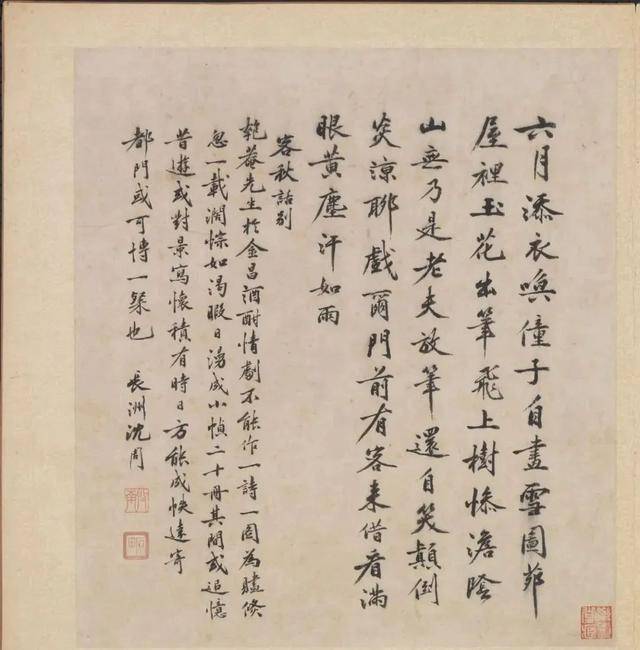 六月添衣喚僮子自畫雪圖茆
屋裡玉花出筆飛上樹慘澹陰
山無乃是老夫放筆還自笑顛倒
炎涼聊戲爾門前有客來借看滿
眼黃塵汗如雨
客秋話別
匏菴先生於金昌酒酣情劇不能作一詩一圖為贐倏
忽一載濶悰如渴暇日湧成小幀二十冊其間或追憶
昔遊或對景寫懷積有時日方能成快遠寄
都門或可博一粲也 長洲沈周